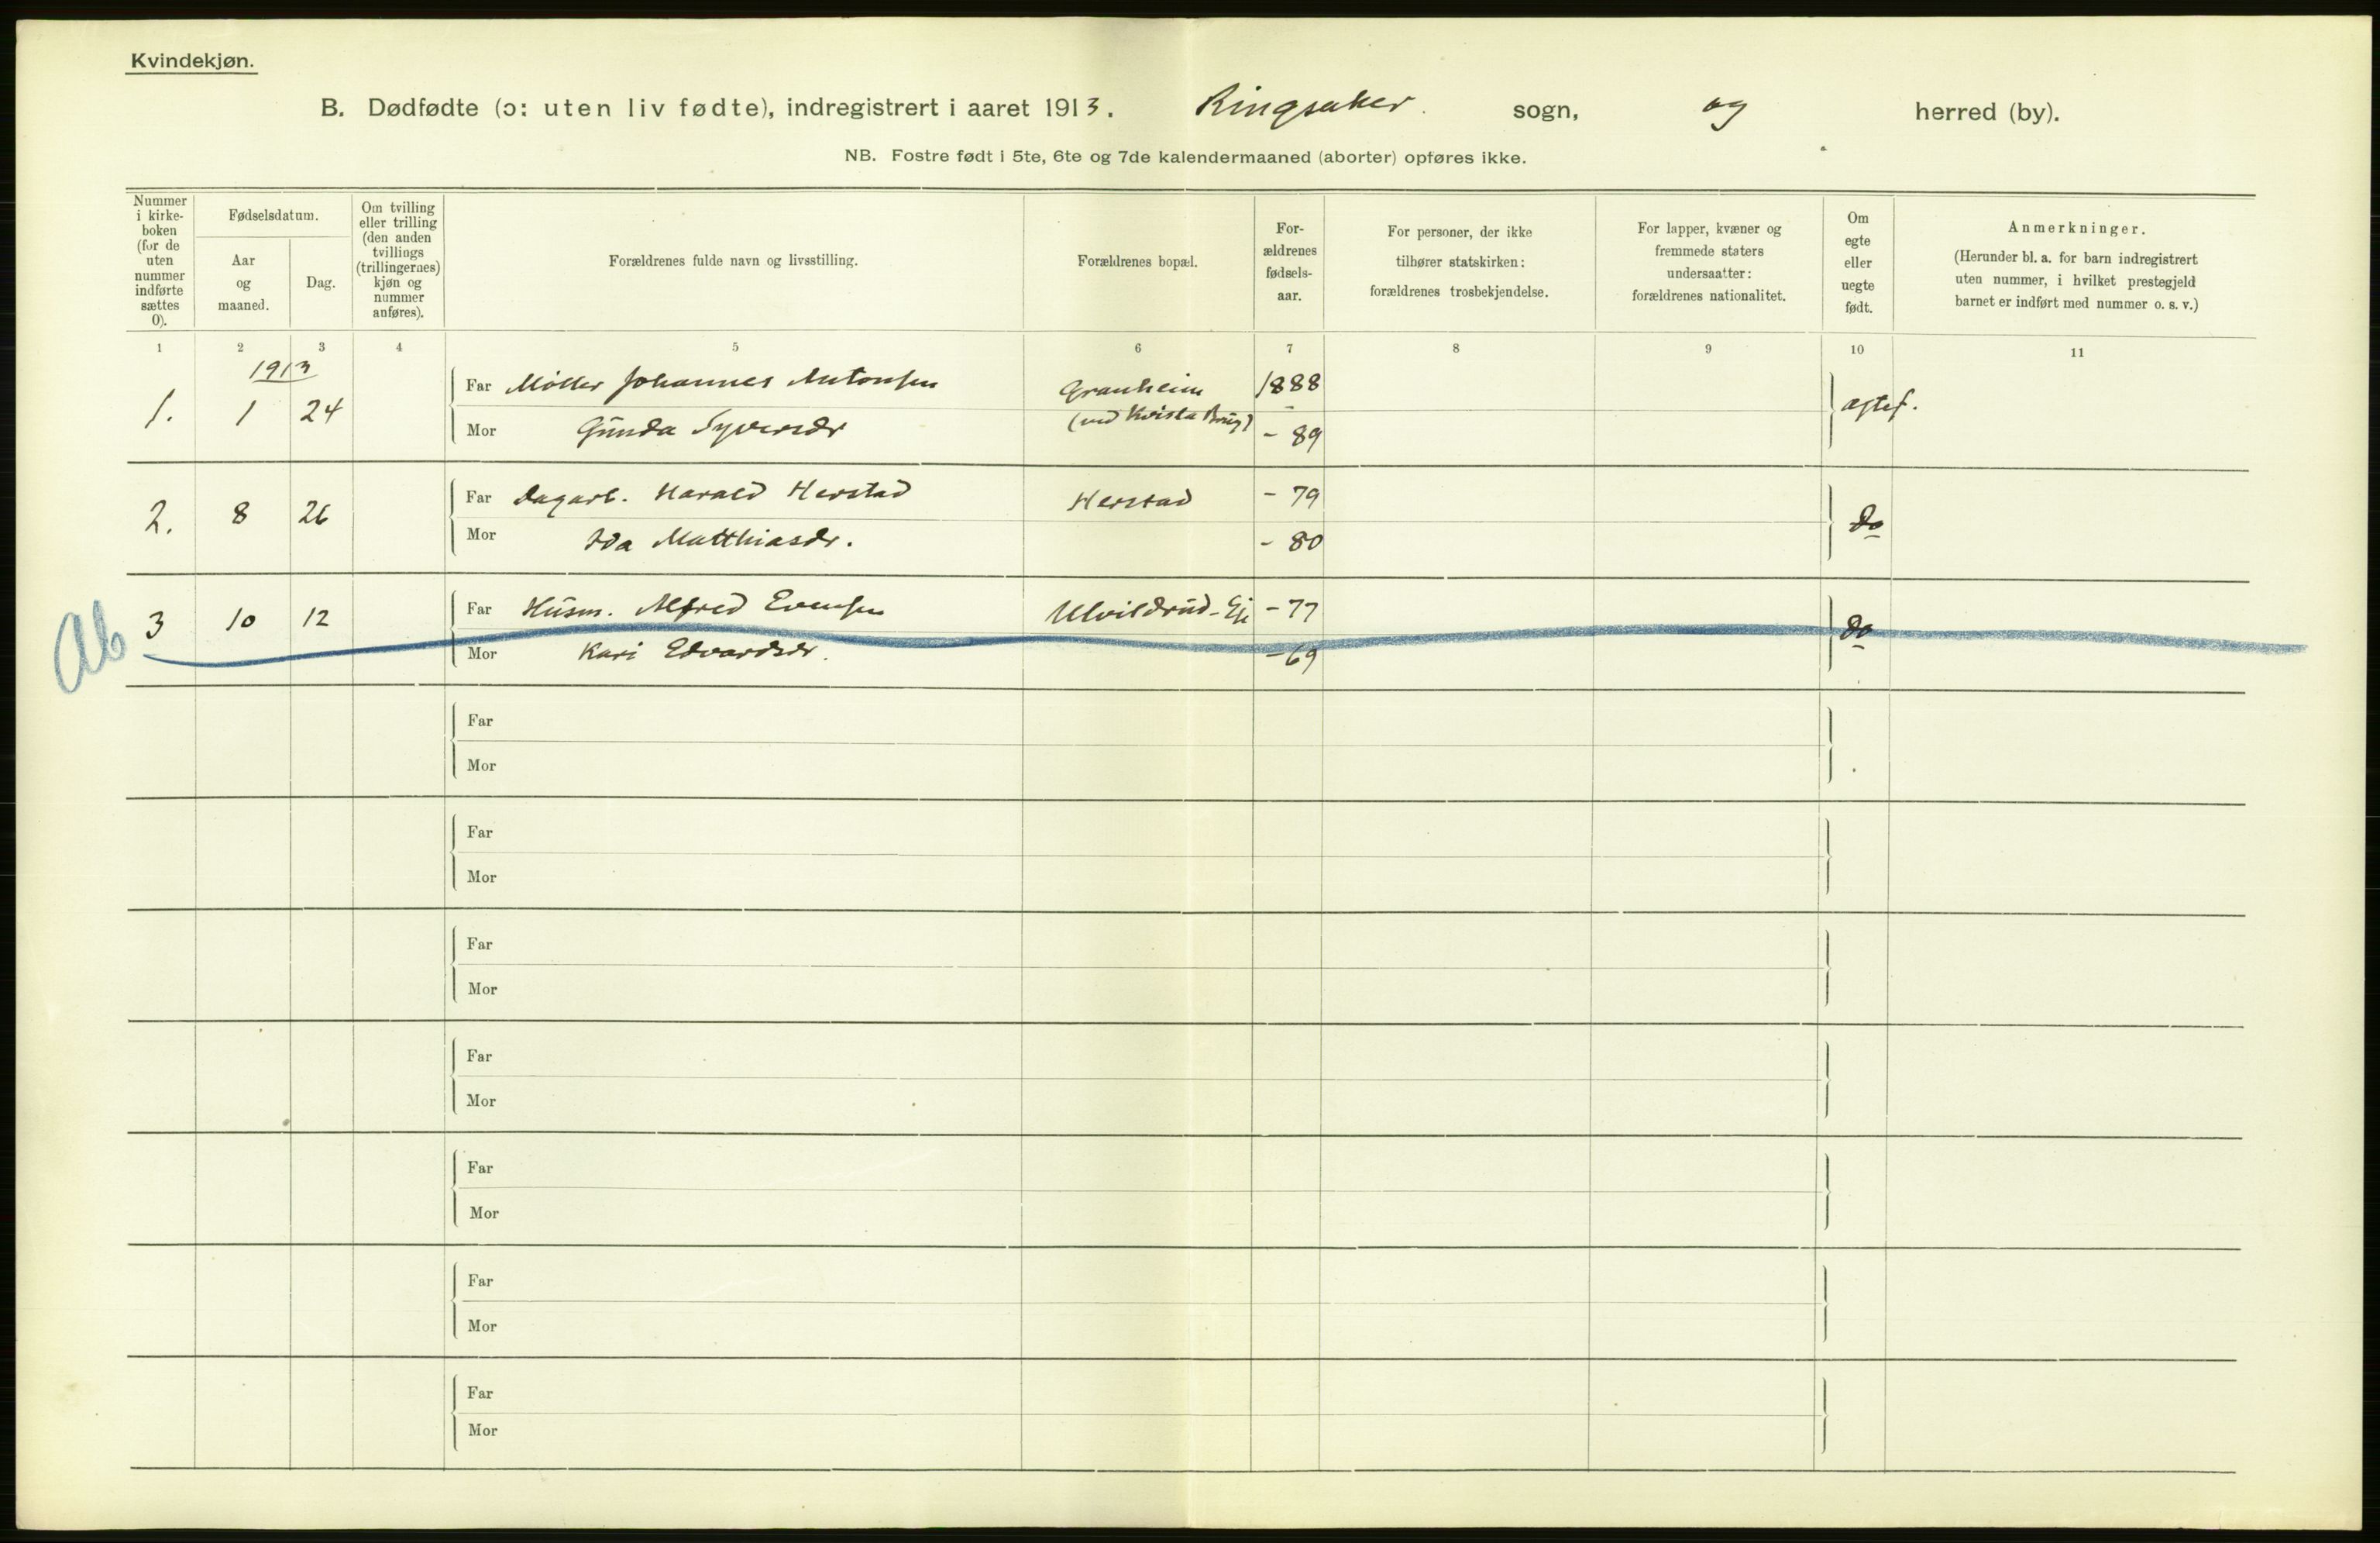 Kvindekjøn.
B. Dødfødte (ɔ: uten liv fødte), indregistrert i aaret 1913. Ringsaker. sogn, og herred (by).
NB. Fostre født i 5te, 6te og 7de kalendermaaned (aborter) opføres ikke.
Nummer
i kirke-
boken
(for de
uten
nummer
indførte
sættes
0).
Fødselsdatum.
Aar
og
maaned.
Dag.
Om tvilling
eller trilling
(den anden
tvillings
(trillingernes)
kjøn og
nummer
anføres).
Forældrenes fulde navn og livsstilling.
Forældrenes bopæl.
For-
ældrenes
fødsels-
aar.
For personer, der ikke
tilhører statskirken:
forældrenes trosbekjendelse.
For lapper, kvæner og
fremmede staters
undersaatter:
forældrenes nationalitet.
Om
egte
eller
uegte
født.
Anmerkninger.
(Herunder bl. a. for barn indregistrert
uten nummer, i hvilket prestegjeld
barnet er indført med nummer o. s. v.)
1 2 3 4 5 6 7 8 9 10 11
1913
1. 1 24 Far Møller Johannes Antonsen Granheim 1888 ægtef.
Mor Gunda Syversdr (ved Kvista Brug) - 89
2. 8 26 Far Dagarb. Harald Herstad Herstad - 79 do
Mor Ida Matthiasdr. - 80
Ab 3 10 12 Far Husm. Alfred Evensen Ulvildrud-Eje - 77 do
Mor Kari Edvardsdr. - 69
Far
Mor
Far
Mor
Far
Mor
Far
Mor
Far
Mor
Far
Mor
Far
Mor